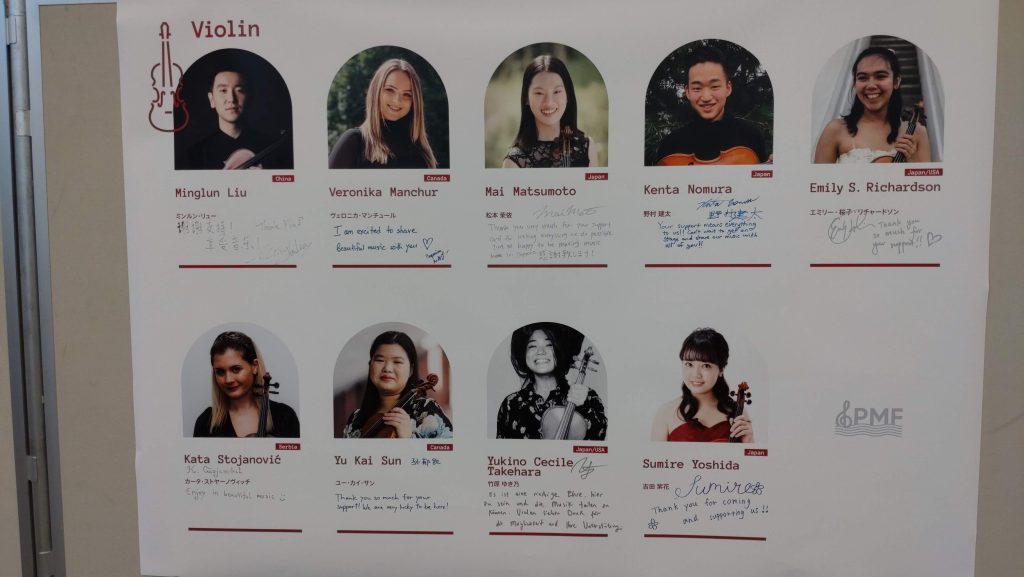 Violin
China
Minglun Liu
ミンルン・リュー
谢谢支持!
Thank you!
享受音乐!
Canada
Veronika Manchur
ヴェロニカ・マンチュール
I am excited to share
beautiful music with you ♡
Japan
Mai Matsumoto
松本 茉佑
Thank you very much for your support
and for making everything
感謝致します!
Japan
Kenta Nomura
野村 建太
Kenta Nomura
野村建太
Your support means everything
to us!! Can't wait to get on
stage and share our music with
all of you!!
Japan/USA
Emily S. Richardson
エミリー・桜子・リチャードソン
Thank you
so much for
your support!! ♡
Serbia
Kata Stojanović
カータ・ストヤーノヴィッチ
Enjoy in beautiful music
Canada
Yu Kai Sun
ユー・カイ・サン
Thank you so much for your
support! We are very lucky to be here!
Japan/USA
Yukino Cecile
Takehara
竹原 ゆき乃
Es ist eine Ehre, hier
zu sein und die Musik teilen zu
können. Vielen Dank für
die und Ihre Unterstützung
Japan
Sumire Yoshida
吉田 紫花
Sumire
Thank you for coming
and supporting us!!
PMF